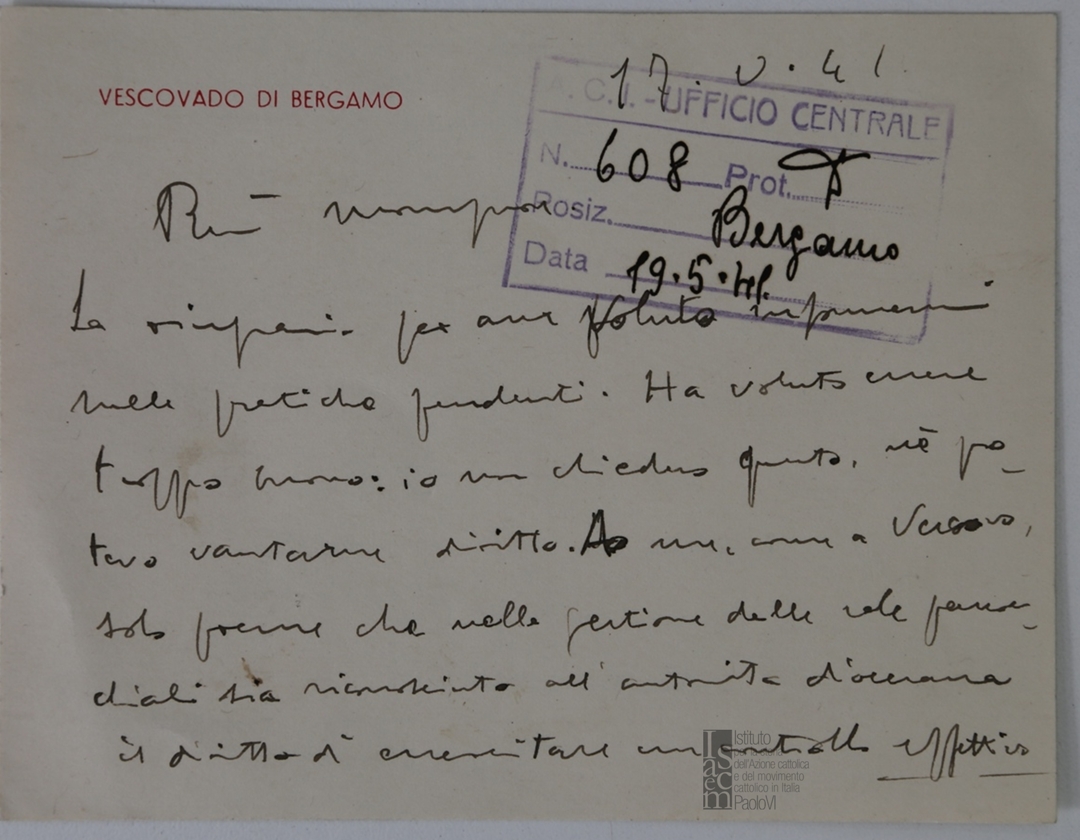 17. V. 41.
VESCOVADO DI BERGAMO
A. C. I. - UFFICIO CENTRALE
N. 608 Prot.
Posiz. Bergamo
Data 19.5.41.
La ringrazio per aver voluto informarmi
nelle pratiche pendenti. Ha voluto essere
troppo buono: io non chiedevo questo, nè po-
tevo vantarne diritto. A me, come a
solo preme che nella gestione delle sale parroc-
chiali sia riconosciuto all'autorità diocesana
il diritto di esercitare un controllo effettivo
Istituto
dell'Azione cattolica
e del movimento
cattolico in Italia
PaoloVI
Isacem